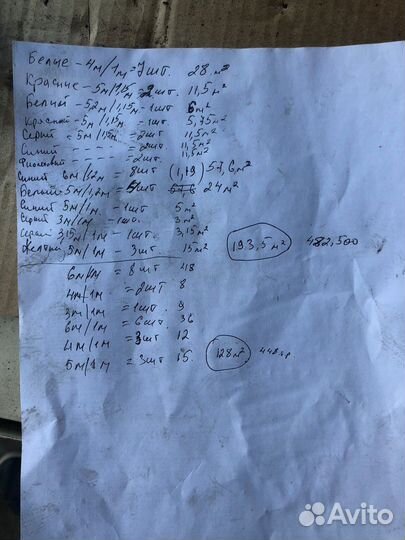 Белые - 4м/1м = 7шт. 28 м²
Красные - 5м/1,15м = 2шт. 11,5м²
Белый - 5,2м/1,15м - 1шт 6м²
Красный - 5м/1,15м - 1шт. 5,75м²
Серый - 5м/1,15м - 2шт 11,5м²
Синий - = 2шт. 11,5м²
Фиолетовый = 2шт. 11,5м²
Синий 6м/1,2м = 8шт (1,19) 57,6м²
Белый 5м/1,2м = шт 24м²
Синий 5м/1м - 1шт 5м²
Серый 3м/1м - 1шт. 3м²
Серый 3,15м/1м - 1шт. 3,15м²
Желтый 5м/1м - 3шт 15м² 193,5м² 482,500
6м/1м = 8шт 48
4м/1м = 2шт 8
3м/1м = 1шт 9
6м/1м = 6шт. 36
4м/1м = 3шт 12
5м/1м = 3шт 15. 128м²
Avito